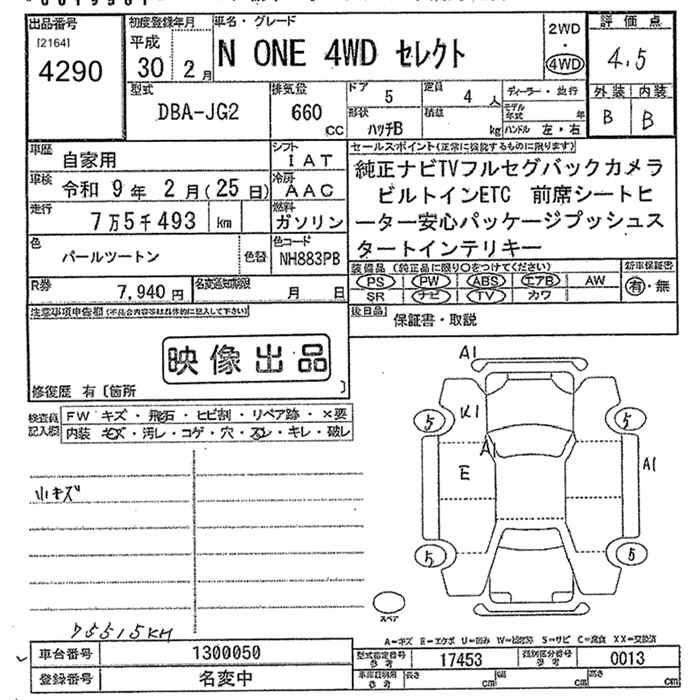 出品番号 初度登録年月 車名・グレード 2WD 評価点
[2164] 平成 N ONE 4WD セレクト ・ 4.5
4290 30 2月 4WD 外装 内装
型式 排気量 ドア 5 定員 4人 ディーラー・並行 B B
DBA-JG2 660 CC 形状 ハッチB 積載 kg モデル年式 年
ハンドル 左・右
車歴 自家用 シフト IAT セールスポイント(正常に機能するものに限ります)
車検 令和 9年 2月(25日) 冷房 AAC 純正ナビTVフルセグバックカメラ
走行 7万5千493 km 燃料 ガソリン ビルトインETC 前席シートヒ
ーター安心パッケージプッシュス
色 パールツートン 色替 色コード NH883PB タートインテリキー
装備品 (純正品に限り○をつけてください) 新車保証書
R券 7,940円 名変通知期限 月 日 PS PW ABS エアB AW 有・無
SR ナビ TV カワ
注意事項申告欄(不具合内容等は具体的に記入して下さい) 後日品 保証書・取説
映像出品
修復歴 有 [箇所 ]
検査員記入欄 FW キズ・飛石・ヒビ割・リペア跡・×要
内装 キズ・汚レ・コゲ・穴・スレ・キレ・破レ
A1
5 X1 5
A1
E A1
小キズ
5 5
スペア
75515KM
A=キズ E=エクボ U=凹み W=波打跡 S=サビ C=腐食 XX=交換済
車台番号 1300050 型式指定番号 参考 17453 類別区分番号 参考 0013
登録番号 名変中 車庫証明用 参考 長さ cm 幅 cm 高さ cm